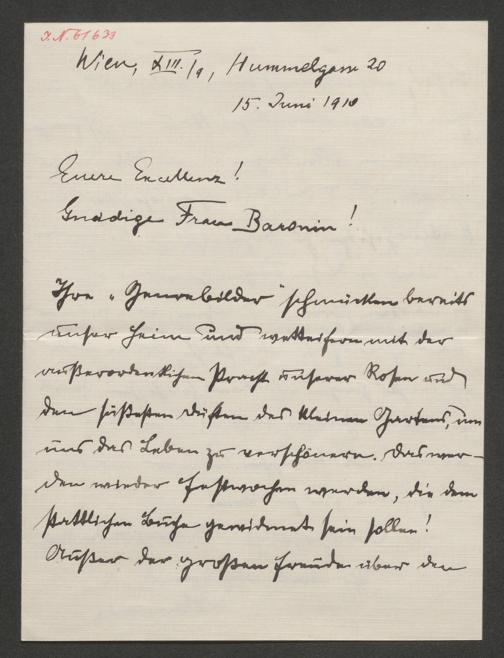 I.N. 61639
Wien, XIII./9, Hummelgasse 20
15. Juni 1910
Euere Excellenz!
Gnädige Frau Baronin!
Ihre „Genrebilder" schmücken bereits
unser Heim und wetteifern mit der
außerordentlichen Pracht unserer Rosen und
den süßesten Düften des kleinen Gartens, um
uns das Leben zu verschönern. Das wer-
den wieder Festwochen werden, die dem
stattlichen Buche gewidmet sein sollen!
Außer der großen Freude über den